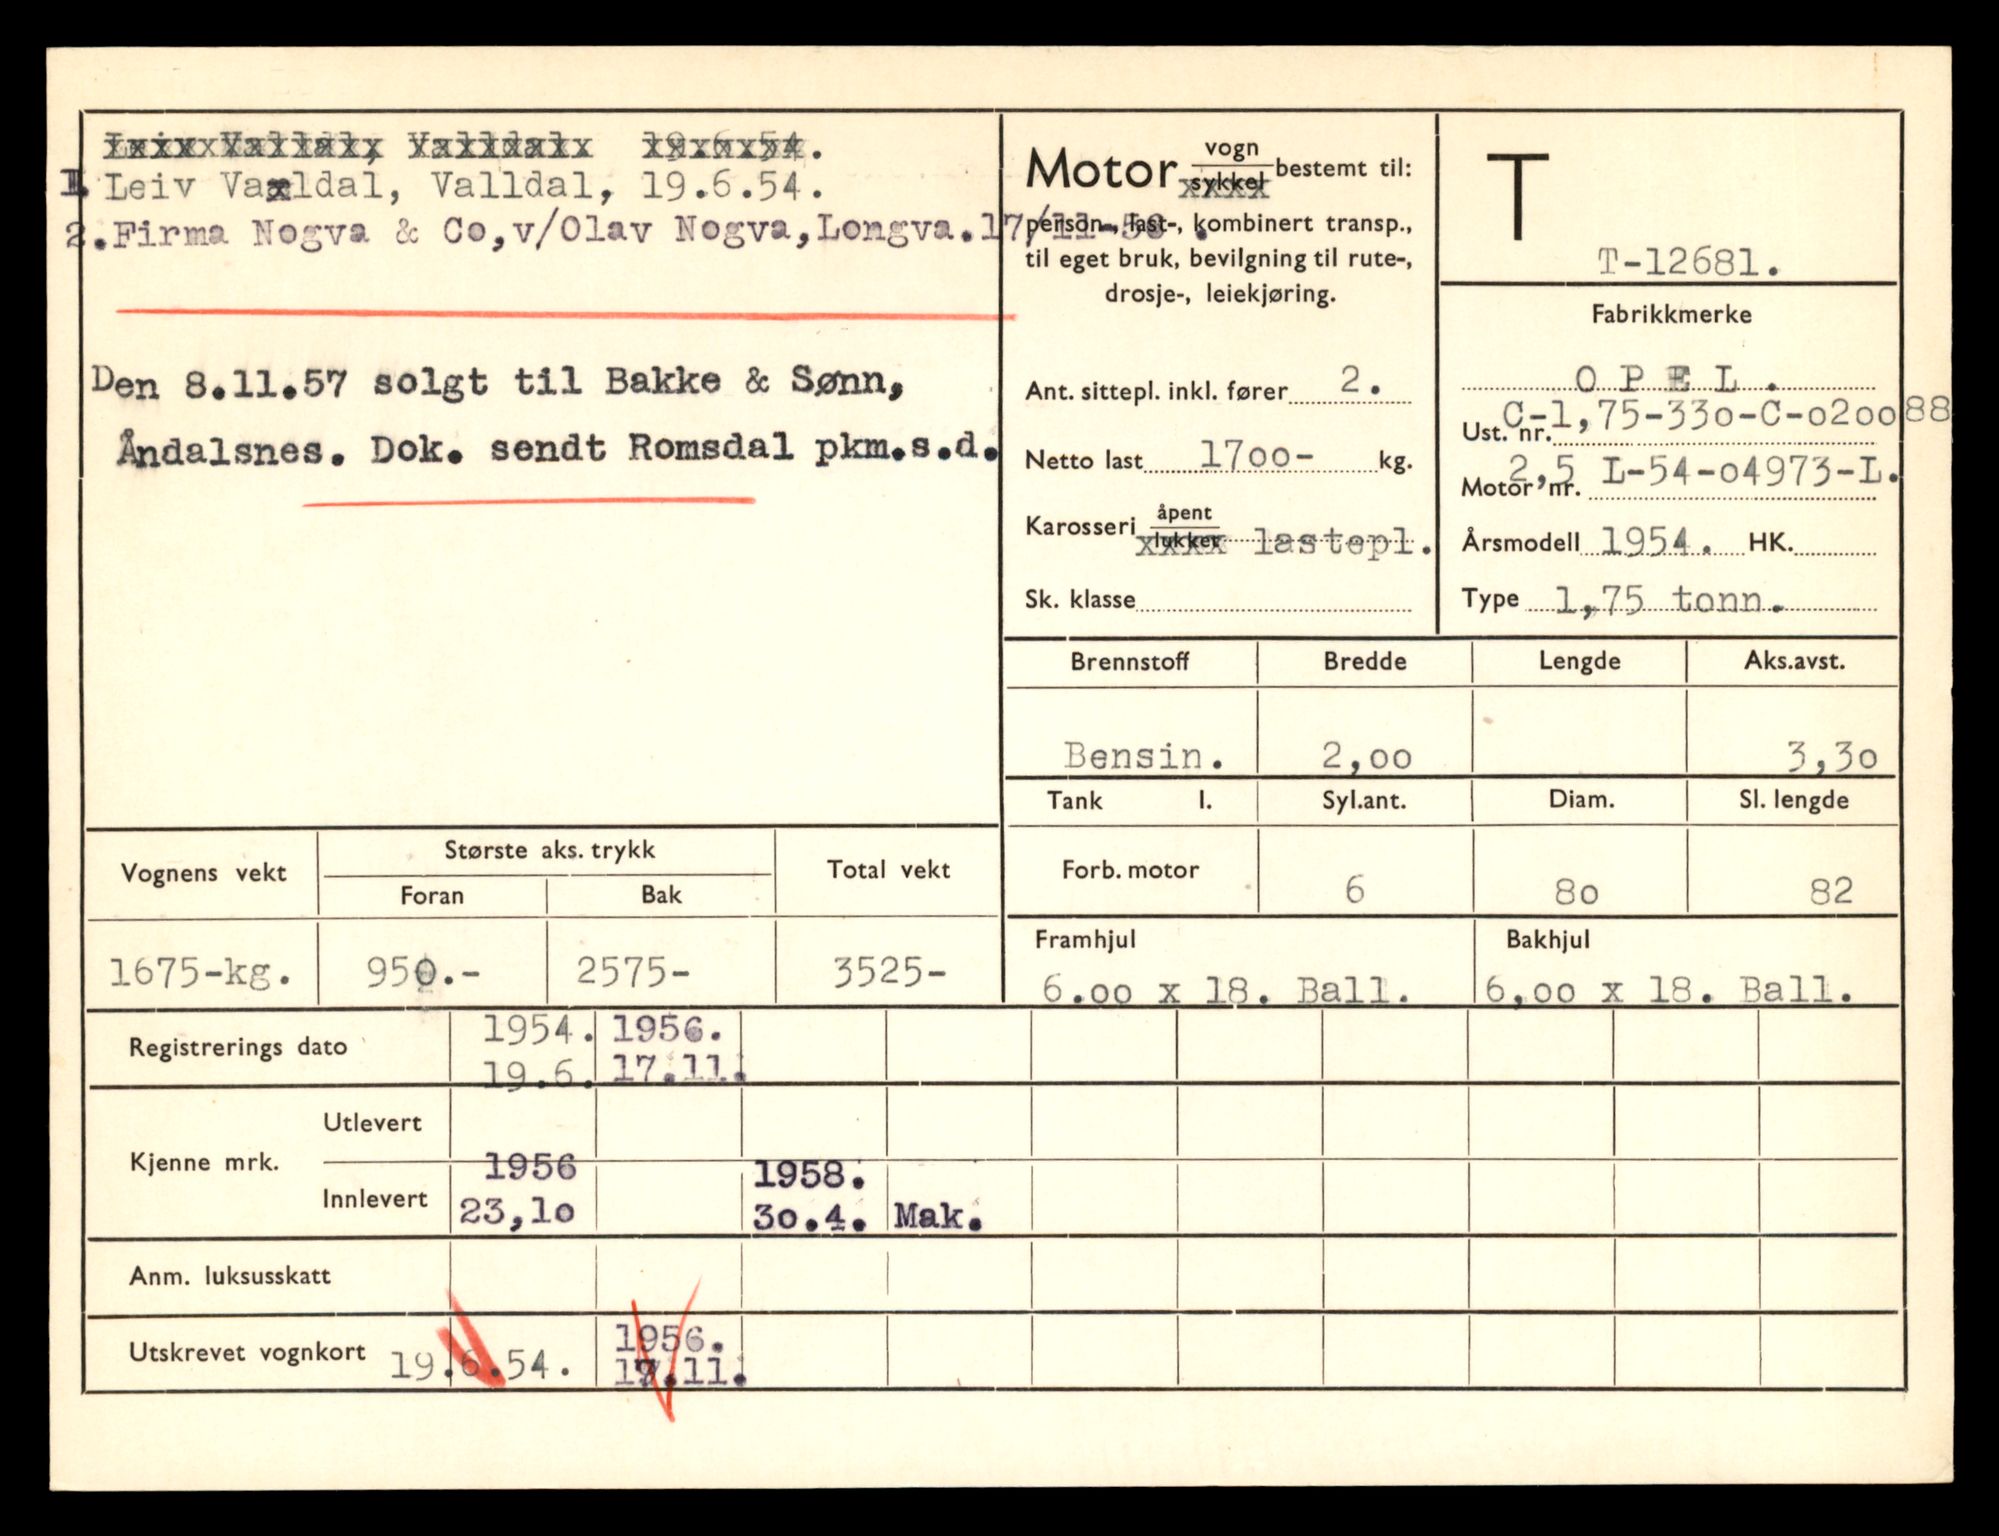 Leiv Valldal, Valldal, 19.6.54.
1. Leiv Valldal, Valldal, 19.6.54.
2. Firma Nogva & Co, v/Olav Nogva, Longva. 17/11-56.
Den 8.11.57 solgt til Bakke & Sønn,
Åndalsnes. Dok. sendt Romsdal pkm.s.d.
Motor vogn
sykkel bestemt til:
person-, last-, kombinert transp.,
til eget bruk, bevilgning til rute-,
drosje-, leiekjøring.
Ant. sittepl. inkl. fører 2.
Netto last 1700- kg.
Karosseri åpent
lukket lastepl.
Sk. klasse
T
T-12681.
Fabrikkmerke
OPEL.
Ust. nr. C-1,75-330-C-020088
Motor nr. 2,5 L-54-04973-L.
Årsmodell 1954. HK.
Type 1,75 tonn.
Brennstoff Bredde Lengde Aks.avst.
Bensin. 2,00 3,30
Tank l. Syl.ant. Diam. Sl. lengde
Forb. motor 6 80 82
Framhjul Bakhjul
6.00 x 18. Ball. 6,00 x 18. Ball.
Vognens vekt Største aks. trykk Total vekt
Foran Bak
1675-kg. 950.- 2575- 3525-
Registrerings dato 1954. 1956.
19.6. 17.11.
Kjenne mrk. Utlevert
Innlevert 1956 1958.
23,10 30.4. Mak.
Anm. luksusskatt
Utskrevet vognkort 19.6.54. 1956.
17.11.